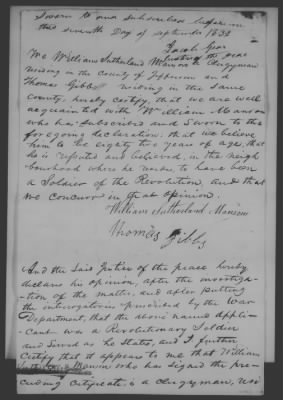 Sworn to and subscribed before me
this seventh Day of September 1832
Jacob Gear
Justice of the peace
We William Sutherland Manson a Clergyman
residing in the County of Jefferson and
Thomas Gibbs residing in the same
county, hereby certify, that we are well
acquainted with William Manson
who has subscribed and Sworn to the
foregoing declaration. that we believe
him to be eighty two years of age, that
he is reputed and believed, in the neigh
bourhood where he resides, to have been
a Soldier of the Revolution, and that
we concur in that opinion.
William Sutherland Manson
Thomas Gibbs
And the Said Justice of the peace hereby
declares his opinion, after the investiga-
-tion of the matter, and after putting
the interrogatories prescribed by the War
Department, that the above named appli-
cant was a Revolutionary Soldier
and Served as he States, and I further
Certify that it appears to me that William
Sutherland Manson who has signed the pre-
ceeding Certificate is a Clergyman, resi